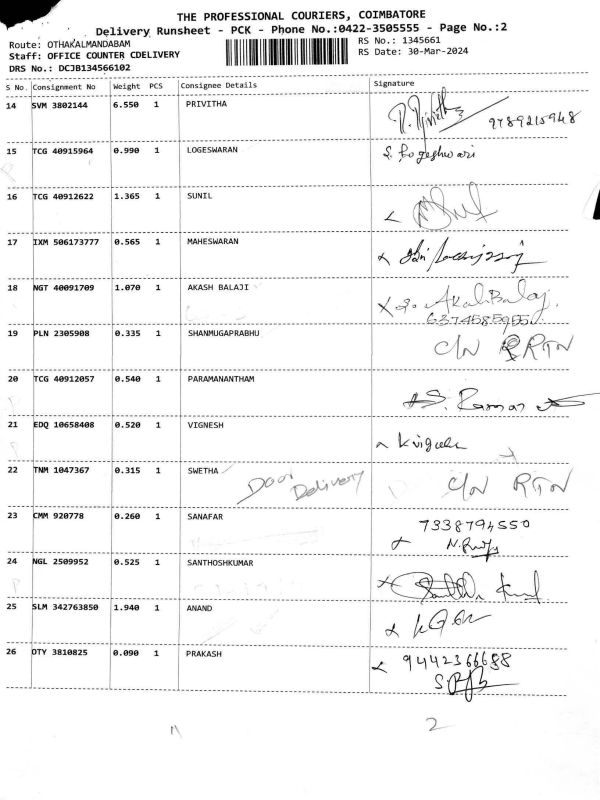 THE PROFESSIONAL COURIERS, COIMBATORE
Delivery Runsheet - PCK - Phone No.:0422-3505555 - Page No.:2
Route: OTHAKALMANDABAM
RS No.: 1345661
Staff: OFFICE COUNTER CDELIVERY
RS Date: 30-Mar-2024
DRS No.: DCJB134566102
S No. Consignment No Weight PCS Consignee Details Signature
14 SVM 3802144 6.550 1 PRIVITHA 9789215948
15 TCG 40915964 0.990 1 LOGESWARAN S. Logeshwari
16 TCG 40912622 1.365 1 SUNIL
17 IXM 506173777 0.565 1 MAHESWARAN
18 NGT 40091709 1.070 1 AKASH BALAJI Akash Balaji
6374585955
19 PLN 2305908 0.335 1 SHANMUGAPRABHU C/N RTN
20 TCG 40912057 0.540 1 PARAMANANTHAM
21 EDQ 10658408 0.520 1 VIGNESH
22 TNM 1047367 0.315 1 SWETHA Door Delivery C/N RTN
23 CMM 920778 0.260 1 SANAFAR 7338794550
24 NGL 2509952 0.525 1 SANTHOSHKUMAR
25 SLM 342763850 1.940 1 ANAND
26 OTY 3810825 0.090 1 PRAKASH 9442366688
2